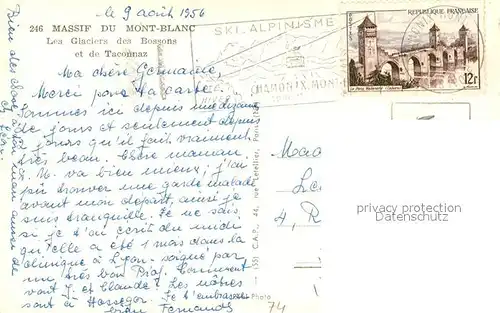 le 9 août 1956
246 MASSIF DU MONT-BLANC
Les Glaciers des Bossons
et de Taconnaz
Ma chère Germaine,
Merci pour ta carte.
Sommes ici depuis une dizaine
de jours et seulement depuis
jours qu'il fait vraiment
très beau. Chère maman
va bien mieux, j'ai
pu trouver une garde malade
avant mon départ, aussi je
suis tranquille. Je ne sais
si je t'ai écrit du midi
qu'elle a été 1 mois dans la
clinique à Lyon - soignée par
un très bon Prof. Comment
vont J. et Claude? Les nôtres
sont à Hossegor. Je t'embrasse
bien Fernande
Bien des choses à ton mari
SKI-ALPINISME
CHAMONIX MONT
RÉPUBLIQUE FRANÇAISE
12F
44, rue Letellier, Paris
C.A.P.
Photo
Mad
4, R
74
privacy protection
Datenschutz